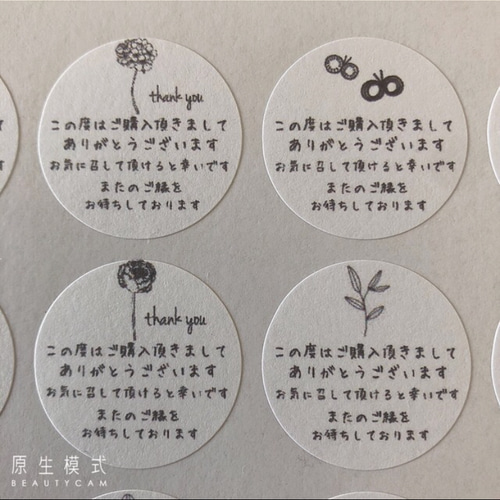 thank you
この度はご購入頂きまして
ありがとうございます
お気に召して頂けると幸いです
またのご縁を
お待ちしております
この度はご購入頂きまして
ありがとうございます
お気に召して頂けると幸いです
またのご縁を
お待ちしております
thank you
この度はご購入頂きまして
ありがとうございます
お気に召して頂けると幸いです
またのご縁を
お待ちしております
この度はご購入頂きまして
ありがとうございます
お気に召して頂けると幸いです
またのご縁を
お待ちしております
原生模式
BEAUTYCAM